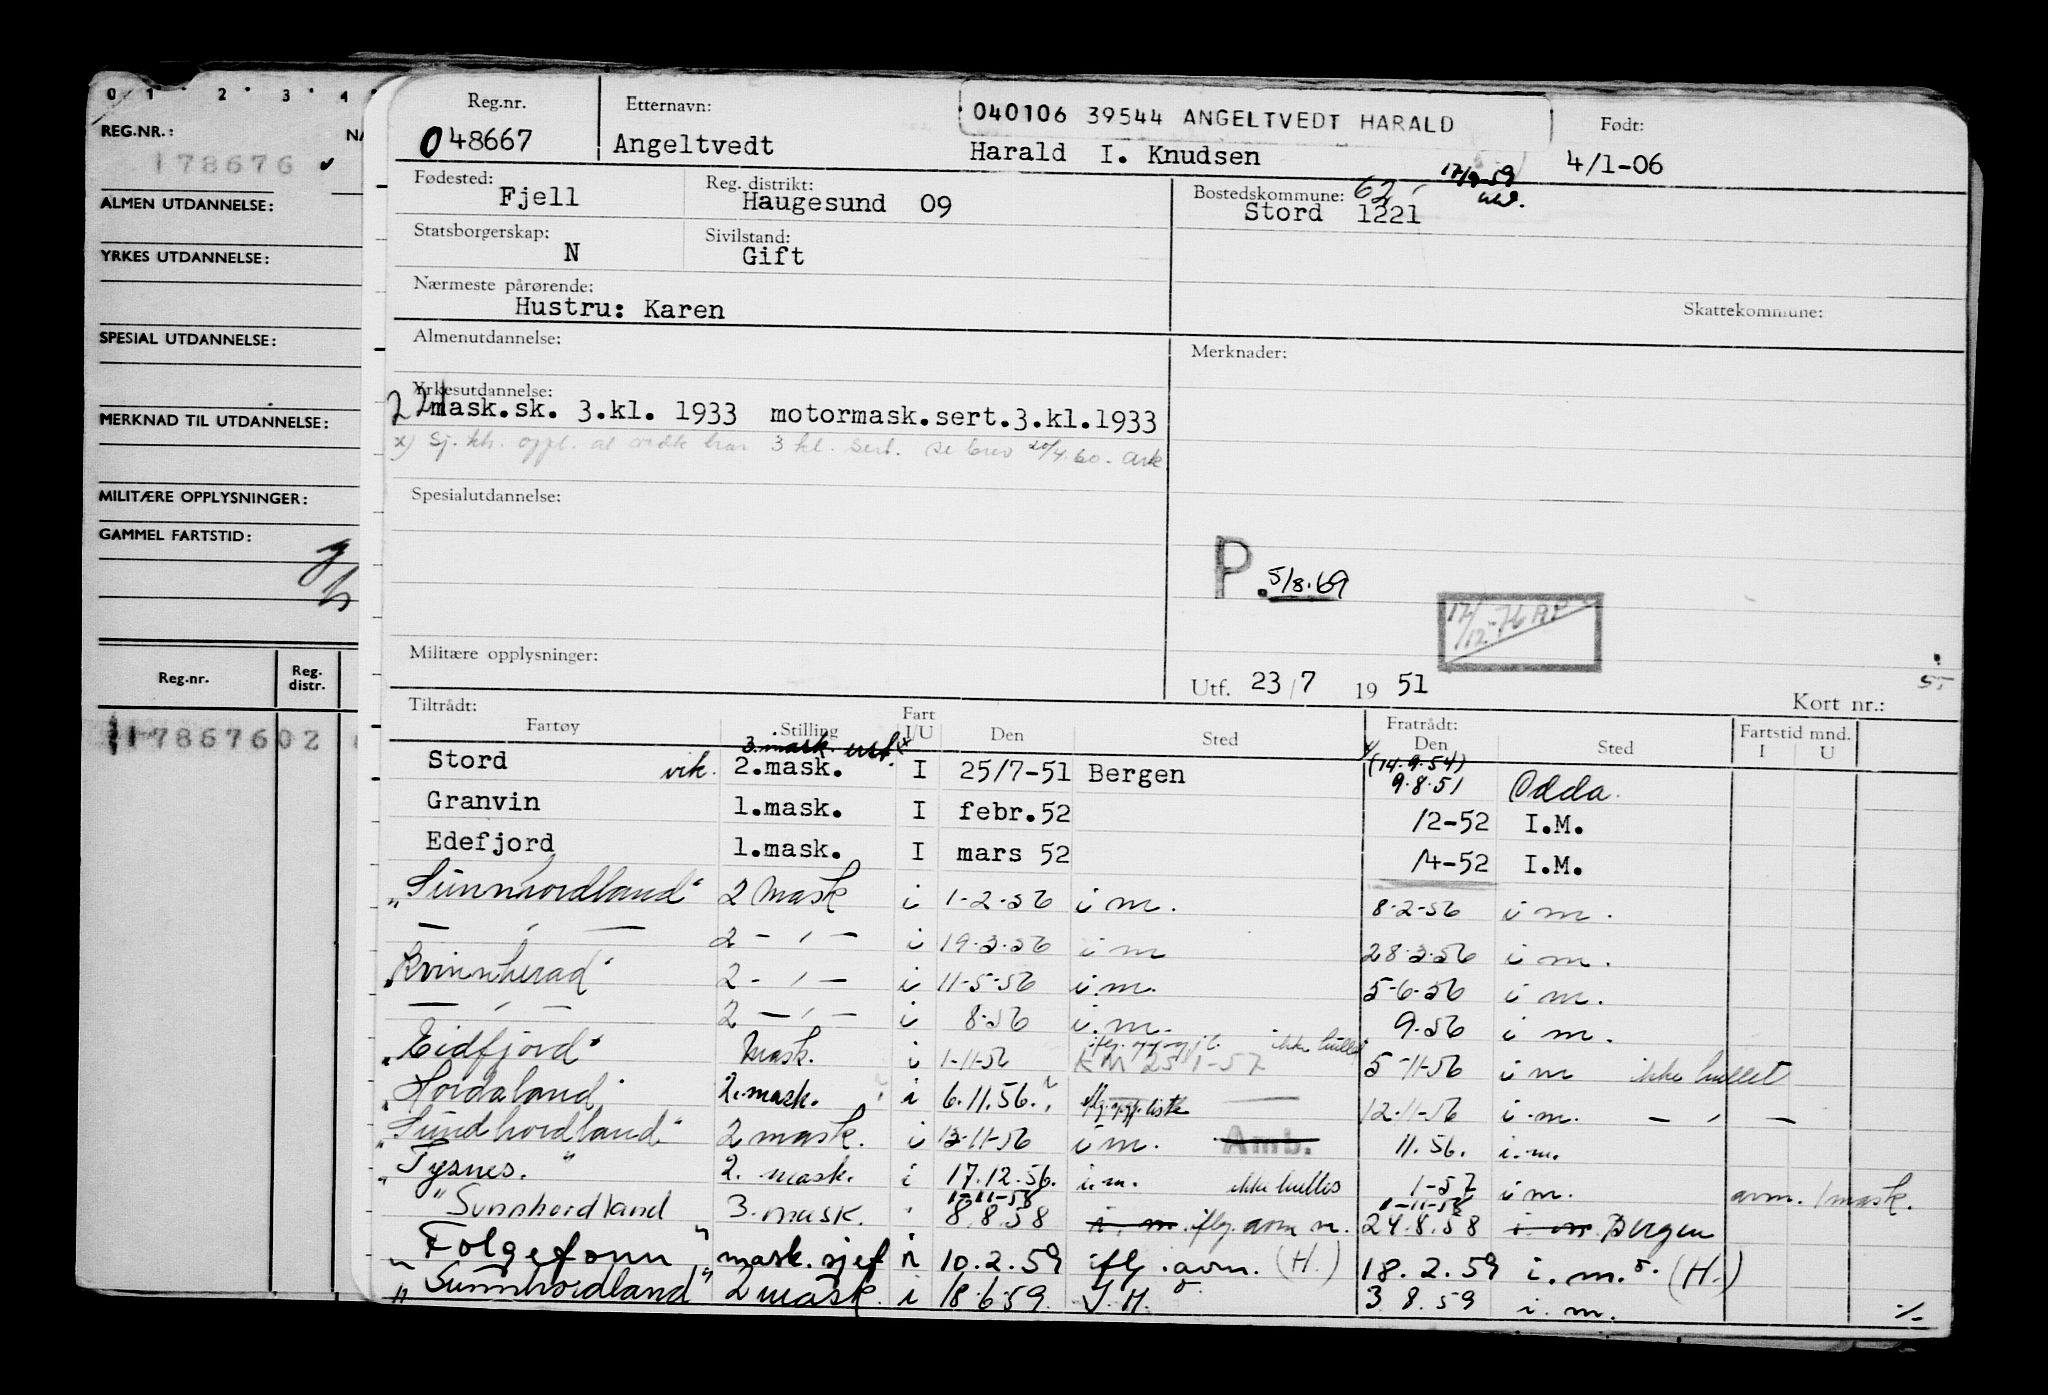 0 1 2 3 4
REG.NR.: NA
178676
ALMEN UTDANNELSE:
YRKES UTDANNELSE:
SPESIAL UTDANNELSE:
MERKNAD TIL UTDANNELSE:
MILITÆRE OPPLYSNINGER:
GAMMEL FARTSTID:
Reg.nr. Reg. distr.
17867602
Reg.nr. Etternavn: 040106 39544 ANGELTVEDT HARALD Født:
048667 Angeltvedt Harald I. Knudsen 4/1-06
Fødested: Reg. distrikt: Bostedskommune: 62
Fjell Haugesund 09 Stord 1221
Statsborgerskap: Sivilstand:
N Gift
Nærmeste pårørende:
Hustru: Karen Skattekommune:
Almenutdannelse: Merknader:
Yrkesutdannelse:
mask.sk. 3.kl. 1933 motormask.sert.3.kl.1933
x) Sj. kh. oppl. at vedk har 3 kl. sert. se brev 20/4.60. Ark
Spesialutdannelse:
P. 5/8.69
Militære opplysninger:
Utf. 23/7 1951 Kort nr.:
Tiltrådt: Fratrådt: Fartstid mnd.
Fartøy Stilling Fart I/U Den Sted Den Sted I U
3.mask. (14.9.54)
Stord vik. 2.mask. I 25/7-51 Bergen 9.8.51 Odda.
Granvin 1.mask. I febr.52 /2-52 I.M.
Edefjord 1.mask. I mars 52 /4-52 I.M.
"Sunnhordland" 2 mask i 1-2-56 i m. 8-2-56 i m.
— " — 2 - " - i 19-3-56 i m 28-3-56 i m.
"Kvinnherad" 2 - " - i 11-5-56 i.m. 5-6-56 i m.
— " — 2 - " - i 8-56 i.m. 9-56 i m.
"Eidfjord" Mask. i 1-11-56 KM 25-1-57 ikke hullet 5-11-56 i m ikke hullet
"Hordaland" 2.mask. i 6.11.56. iflg. opp. liste 12-11-56 i.m. — " —
"Sundhordland" 2 mask. i 13-11-56 i m. Amb. 11.56. i.m.
"Tysnes." 2. mask. i 17.12.56. i.m. ikke hulles 1-57 i m. avm. 1 mask.
1-11-58 1-11-58
"Sunnhordland 3.mask. " 8.8.58 i. m. iflg. avm n. 24.8.58 i. m. Bergen
"Folgefonn" mask.sjef i 10.2.59 iflg. avm. (H.) 18.2.59 i.m. (H.)
"Sunnhordland" 2 mask. i 18.6.59. I.H. 3 8.59 i.m. ./.